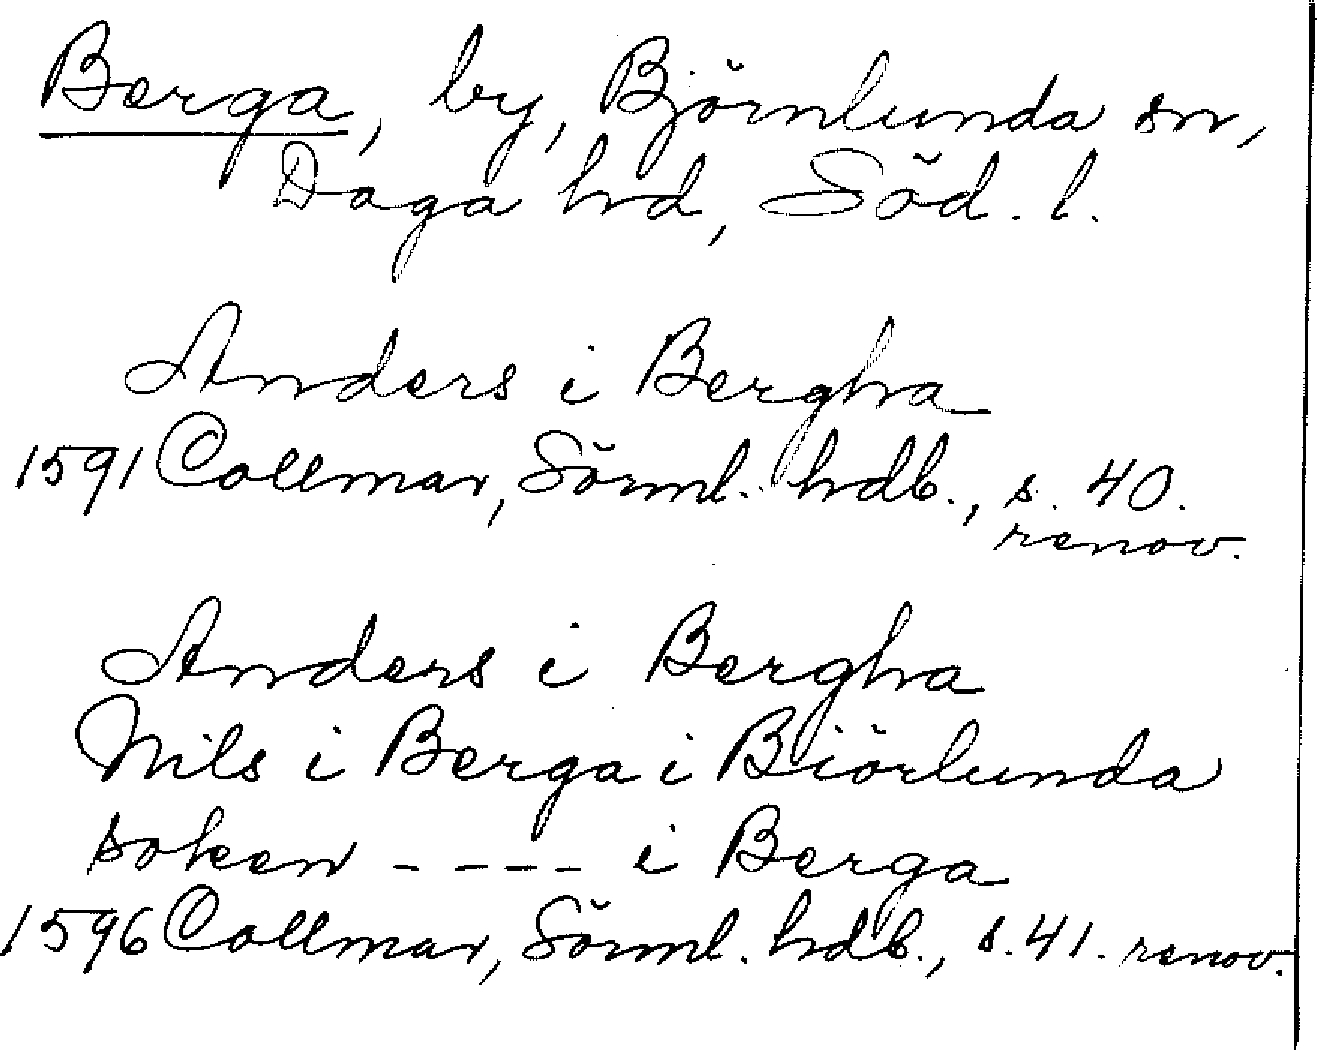 Berga, by, Björnlunda sn,
Daga hd, Söd. l.
Anders i Bergha
1591 Collmar, Sörml. hdb., s. 40.
renov.
Anders i Bergha
Nils i Berga i Biörlunda
soken - - - - i Berga
1596 Collmar, Sörml. hdb., s. 41. renov.